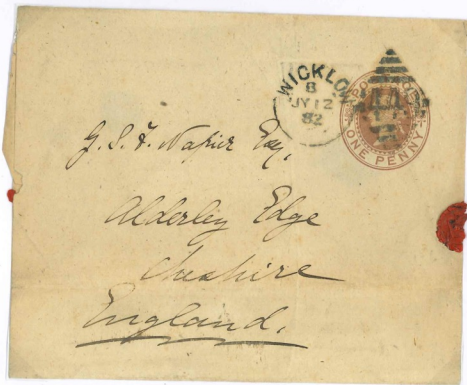 WICKLOW
8
JY 12
82
ONE PENNY
G. S. F. Napier Esq,
Alderley Edge
Cheshire
England.